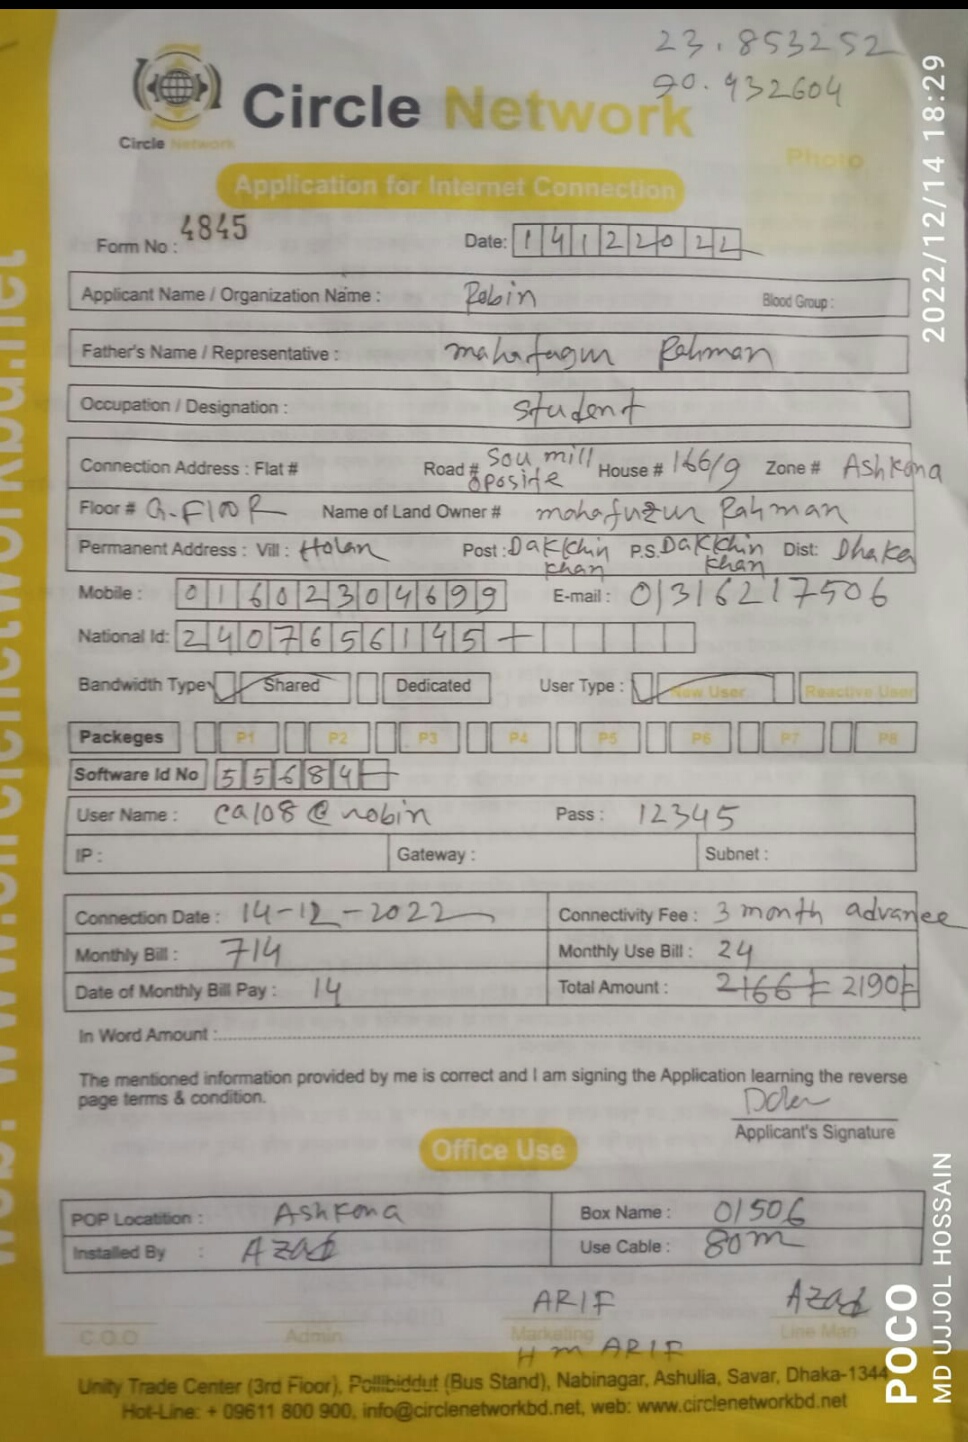 23.853252
90.432604
Circle Network
Circle Network
Photo
Application for Internet Connection
Form No : 4845 Date: 14122022
Applicant Name / Organization Name : Robin Blood Group :
Father's Name / Representative : Rahman
Occupation / Designation : Student
Connection Address : Flat # Road # Sou mill oposite House # 166/9 Zone # Ashkona
Floor # G-FlOOR Name of Land Owner # mohafuzur Rahman
Permanent Address : Vill : Holan Post : Dakkhin khan P.S. Dakkhin khan Dist: Dhaka
Mobile : 01602304699 E-mail : 01316217506
National Id: 2407656145
Bandwidth Type Shared Dedicated User Type : New User Reactive User
Packeges P1 P2 P3 P4 P5 P6 P7 P8
Software Id No 55684
User Name : ca108@robin Pass : 12345
IP : Gateway : Subnet :
Connection Date : 14-12-2022 Connectivity Fee : 3 month advance
Monthly Bill : 714 Monthly Use Bill : 24
Date of Monthly Bill Pay : 14 Total Amount : 2166 2190
In Word Amount :
The mentioned information provided by me is correct and I am signing the Application learning the reverse
page terms & condition.
Applicant's Signature
Office Use
POP Locatition : Ashkona Box Name : 01506
Installed By : Azad Use Cable : 80m
ARIF Azad
C.O.O Admin Marketing Line Man
H m ARIF
Unity Trade Center (3rd Floor), Pollibiddut (Bus Stand), Nabinagar, Ashulia, Savar, Dhaka-1344
Hot-Line: + 09611 800 900, info@circlenetworkbd.net, web: www.circlenetworkbd.net
web: www.circlenetworkbd.net
2022/12/14 18:29
POCO
MD UJJOL HOSSAIN